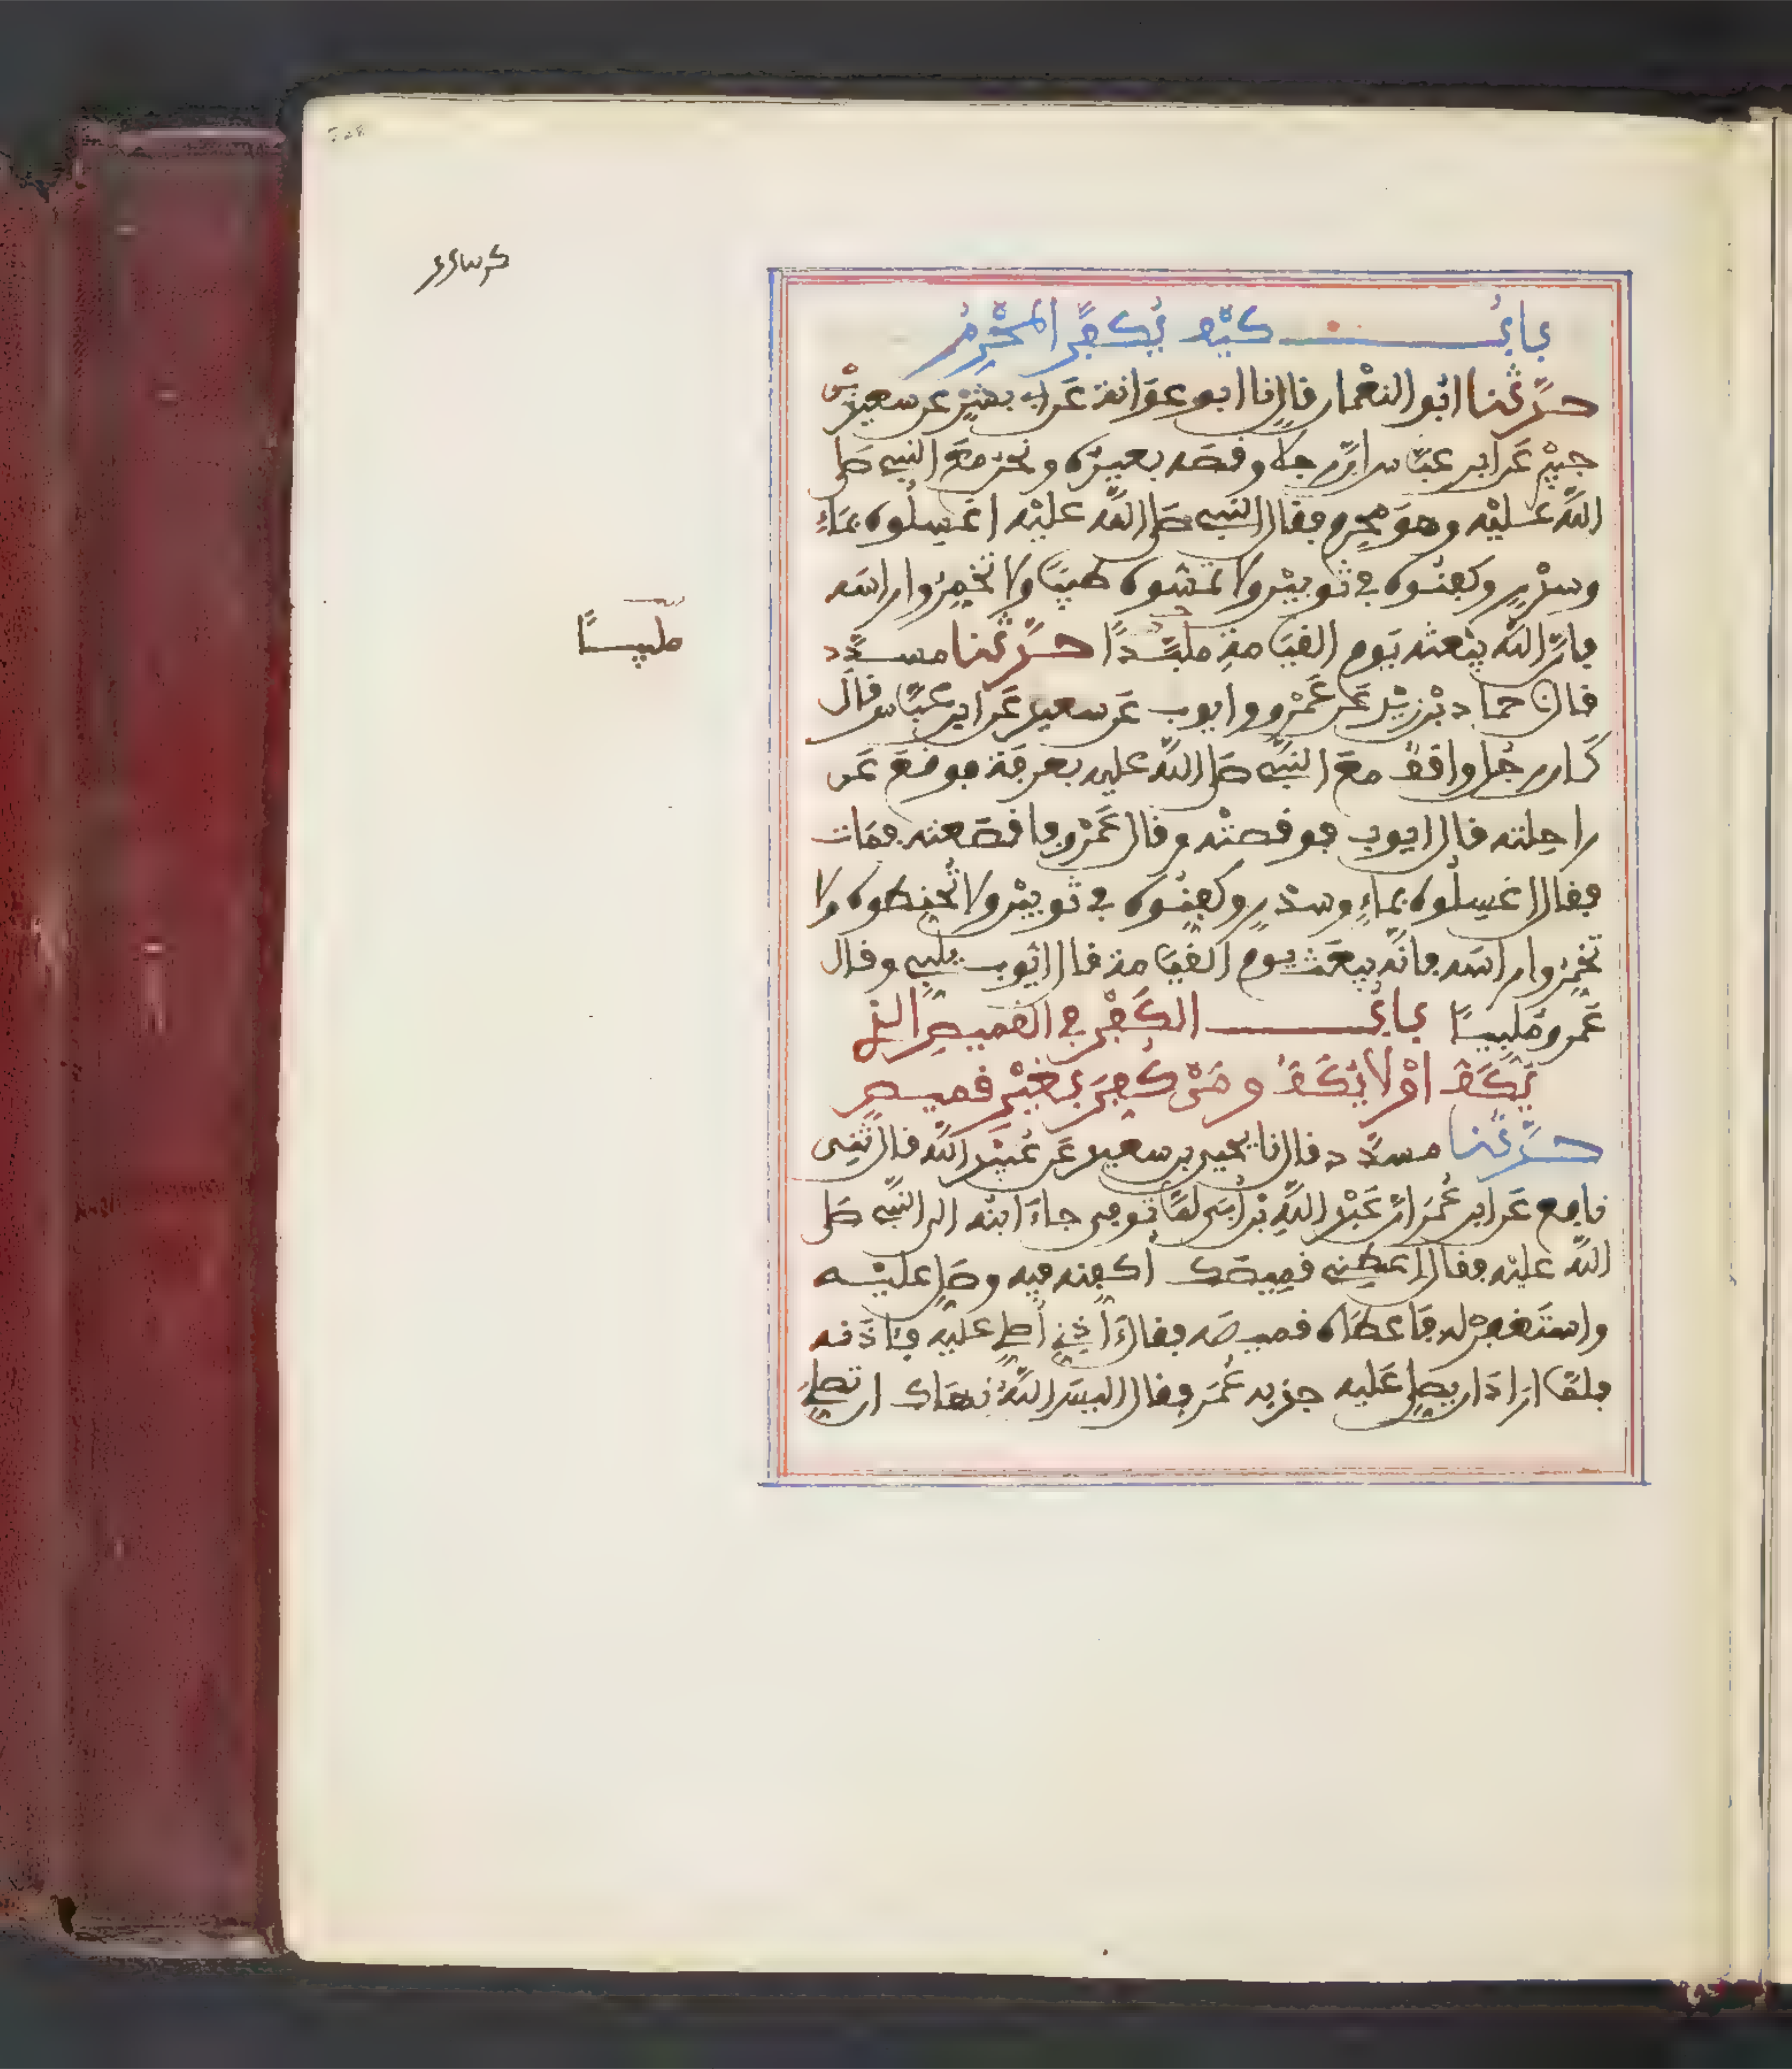 باب كيف يكفن المحرم
حدثنا ابو النعمان قال نا ابو عوانة عن ابي بشر عن سعيد بن
جبير عن ابن عباس ان رجلا وقصه بعيره ونحن مع النبي صلى
الله عليه وهو محرم فقال النبي صلى الله عليه اغسلوه بماء
وسدر وكفنوه في ثوبين ولا تمسوه طيبا ولا تخمروا راسه
فان الله يبعثه يوم القيامة ملبدا حدثنا مسدد
قال نا حماد بن زيد عن عمرو وايوب عن سعيد عن ابن عباس قال
كان رجل واقف مع النبي صلى الله عليه بعرفة فوقع عن
راحلته قال ايوب فوقصته وقال عمرو فاقصعته فمات
فقال اغسلوه بماء وسدر وكفنوه في ثوبين ولا تحنطوه ولا
تخمروا راسه فانه يبعث يوم القيامة قال ايوب يلبي وقال
عمرو ملبيا باب الكفن في القميص الذي
يكف او لا يكف ومن كفن بغير قميص
حدثنا مسدد قال نا يحيى بن سعيد عن عبيد الله قال ثني
نافع عن ابن عمر ان عبد الله بن ابي لما توفي جاء ابنه الى النبي صلى
الله عليه فقال اعطني قميصك اكفنه فيه وصل عليه
واستغفر له فاعطاه قميصه فقال ءاذني اصلي عليه فئاذنه
فلما اراد ان يصلي عليه جذبه عمر فقال اليس الله نهاك ان تصلي
ملبيا